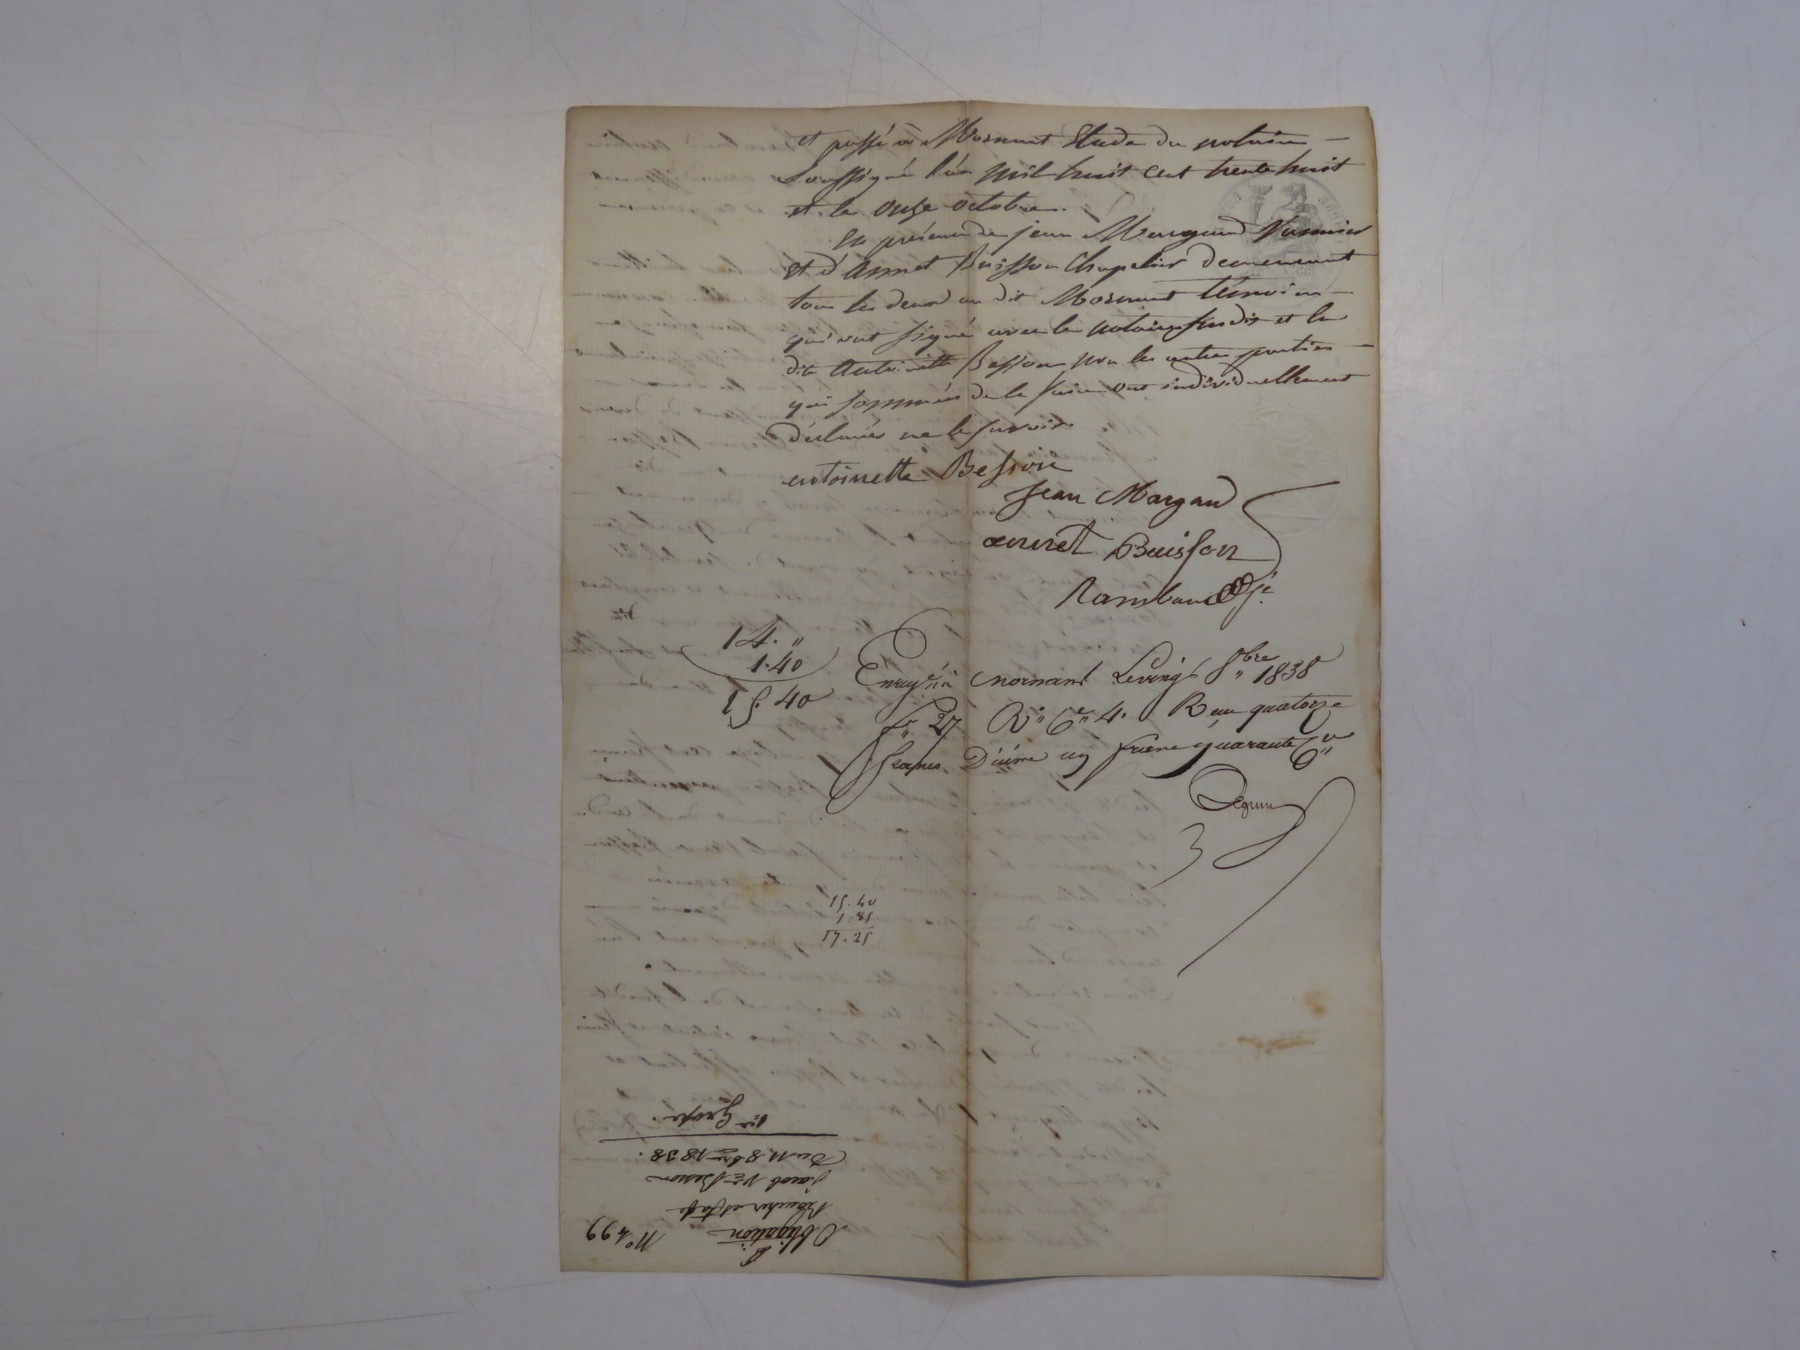 et passé à Mornant Etude du notaire
soussigné l'an mil huit cent trente huit
et le onze octobre.
En présence de jean Margand
et d'annet Buisson Chapelier demeurant
tous les deux au dit Mornant témoins
qui ont signé avec le notaire susdit et la
dite Antoinette Besson non les autres parties
qui sommées de le faire ont individuellement
déclarées ne le savoir.
antoinette Besson
jean Margand
annet Buisson
Rambaud
14. "
1.40
15.40
Enreg.ré à mornant Le vingt 8bre 1838
f° 27 R° Ce 4. R eçu quatorze
francs Décime un franc quarante Ces
15.40
1.85
17.25
N° 499
Obligation
Jacob Ve Besson
Du 11 8bre 1838.
1ère Grosse.